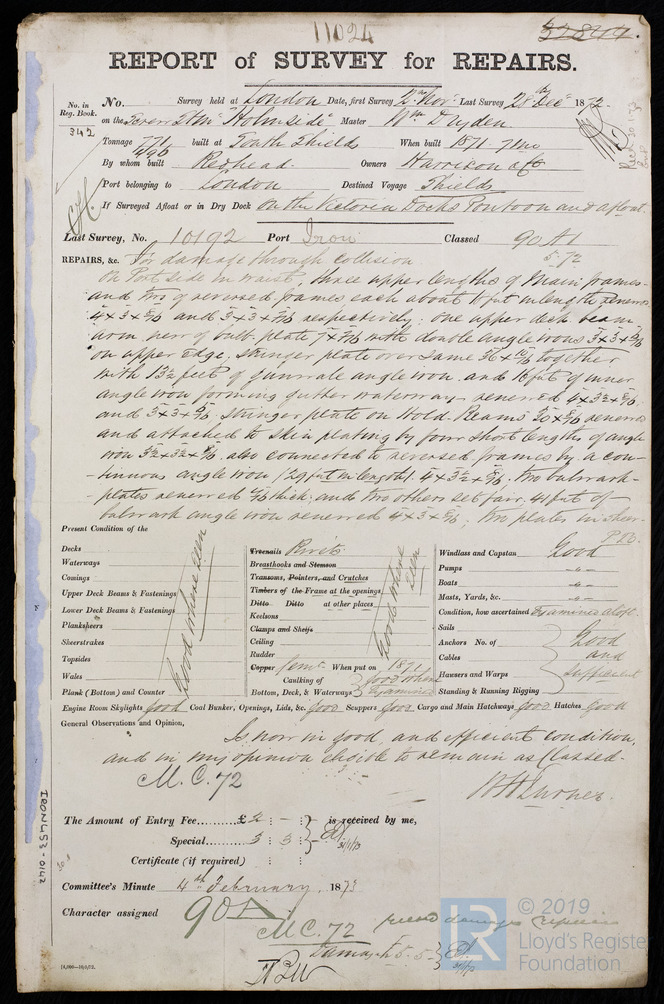 11024
32844.
REPORT of SURVEY for REPAIRS.
No. in Reg. Book. 342
No. Survey held at London Date, first Survey 2nd Nov. Last Survey 28th Dec 1872
on the Screw Str "Holmside" Master Wm Dryden
Tonnage 771 490 built at South Shields When built 1871. 7mo
By whom built Readhead. Owners Harrison & Co
Port belonging to London Destined Voyage Shields
If Surveyed Afloat or in Dry Dock On the Victoria Docks Pontoon and afloat.
Last Survey, No. 10192 Port Iron Classed 90 A1
5.72
REPAIRS, &c. For damage through collision
On Port side in waist, three upper lengths of Main frames
and two of reversed frames each about 16 feet in length renewed
4 x 3 x 6/16 and 3 x 3 x 7/16 respectively: one upper deck beam
arm new of bulb plate 7 x 7/16 with double angle irons 3 x 3 x 6/16
on upper edge, stringer plate over same 36 x /16 together
with 13½ feet of gunwale angle iron and 16 feet of inner
angle iron forming gutter waterway renewed 4 x 3½ x 8/16
and 3 x 3 x 6/16, Stringer plate on Hold Beams 20 x 8/16 renewed
and attached to skin plating by four short lengths of angle
iron 3½ x 3½ x 8/16. also connected to reversed frames by a con-
-tinuous angle iron (29 feet in length) 4 x 3½ x 8/16. two bulwark
-plates renewed /16 thick, and two others set fair, 41 feet of
bulwark angle iron renewed 4 x 3 x 6/16, two plates in sheer-
P.T.O.
Present Condition of the
Decks
Waterways
Comings
Upper Deck Beams & Fastenings
Lower Deck Beams & Fastenings
Planksheers
Sheerstrakes
Topsides
Wales
Plank (Bottom) and Counter
Good where seen
Treenails Rivets
Breasthooks and Stemson
Transoms, Pointers, and Crutches
Timbers of the Frame at the openings
Ditto Ditto at other places
Keelsons
Clamps and Shelfs
Ceiling
Rudder
Good where seen
Copper Cemt. When put on 1871
Caulking of
Bottom, Deck, & Waterways
good when
Examined
Windlass and Capstan Good
Pumps -"-
Boats -"-
Masts, Yards, &c. -"-
Condition, how ascertained Examined aloft
Sails
Anchors No. of
Cables
Hausers and Warps
Standing & Running Rigging
Good
and
sufficient
Engine Room Skylights good Coal Bunker, Openings, Lids, &c. good Scuppers good Cargo and Main Hatchways good Hatches Good
General Observations and Opinion,
Is now in good and efficient condition,
and in my opinion eligible to remain as Classed.
M.C. 72
W H Turner.
The Amount of Entry Fee £2 : - : - is received by me,
Special 5 : 5 : -
31/1/73
Certificate (if required)
Committee's Minute 4th February, 1873
Character assigned 90 A
M.C. 72
record damage repairs
Damage 5.5
31/1/73
IRON453-0142
© 2019
Lloyd's Register
Foundation
LR